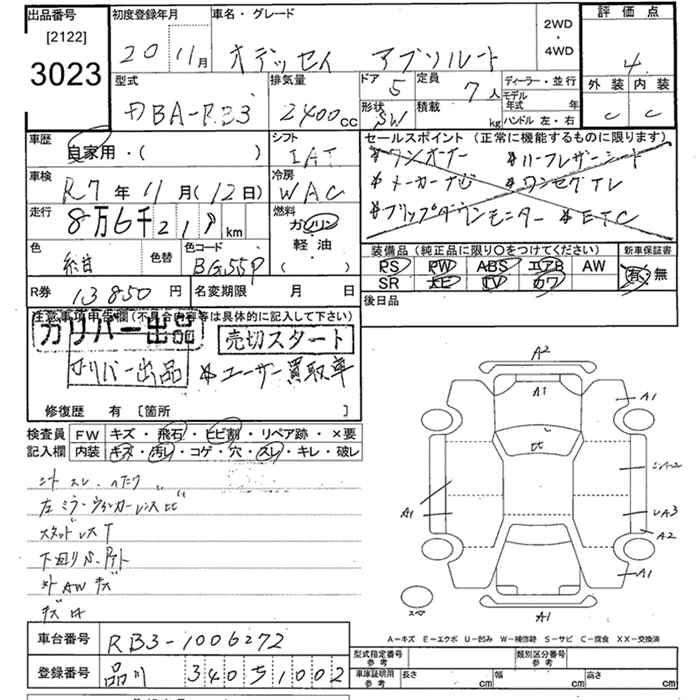 出品番号 初度登録年月 車名・グレード 2WD・4WD 評価点
[2122]
3023
20 11月 オデッセイ アブソルート 4
型式 排気量 ドア 定員 ディーラー・並行 外装 内装
DBA-RB3 2400cc 5 7人 モデル年式 年 C C
形状 SW 積載 kg ハンドル 左・右
車歴 シフト セールスポイント (正常に機能するものに限ります)
自家用・( ) IAT *ワンオーナー *ハーフレザーシート
車検 冷房 *メーカーナビ *ワンセグTV
R7年11月(12日) WAC *フリップダウンモニター *ETC
走行 8万6千219km 燃料 ガソリン 軽油 ( )
色 紺 色替 色コード BG55P
装備品 (純正品に限り○をつけてください) 新車保証書
PS PW ABS エアB AW 有・無
SR ナビ TV カワ
R券 13850円 名変期限 月 日 後日品
注意事項申告欄(不具合内容等は具体的に記入して下さい)
ガリバー出品 売切スタート
ガリバー出品 *ユーザー買取車
修復歴 有 [箇所 ]
検査員 FW キズ・飛石・ヒビ割・リペア跡・×要
記入欄 内装 キズ・汚レ・コゲ・穴・スレ・キレ・破レ
シートスレ、ヘタリ
左ミラーウィンカーレンズヒビ
スタッドレスT
下回りS、
外AWキズ
A2
A1
A1
ヒ
A1
UA3
A2
A1
スペア
A1
A−キズ E−エクボ U−凹み W−補修跡 S−サビ C−腐食 XX−交換済
車台番号 RB3-1006272
登録番号 品川 340 51002
型式指定番号 参考 類別区分番号 参考
車庫証明用 参考 長さ cm 幅 cm 高さ cm